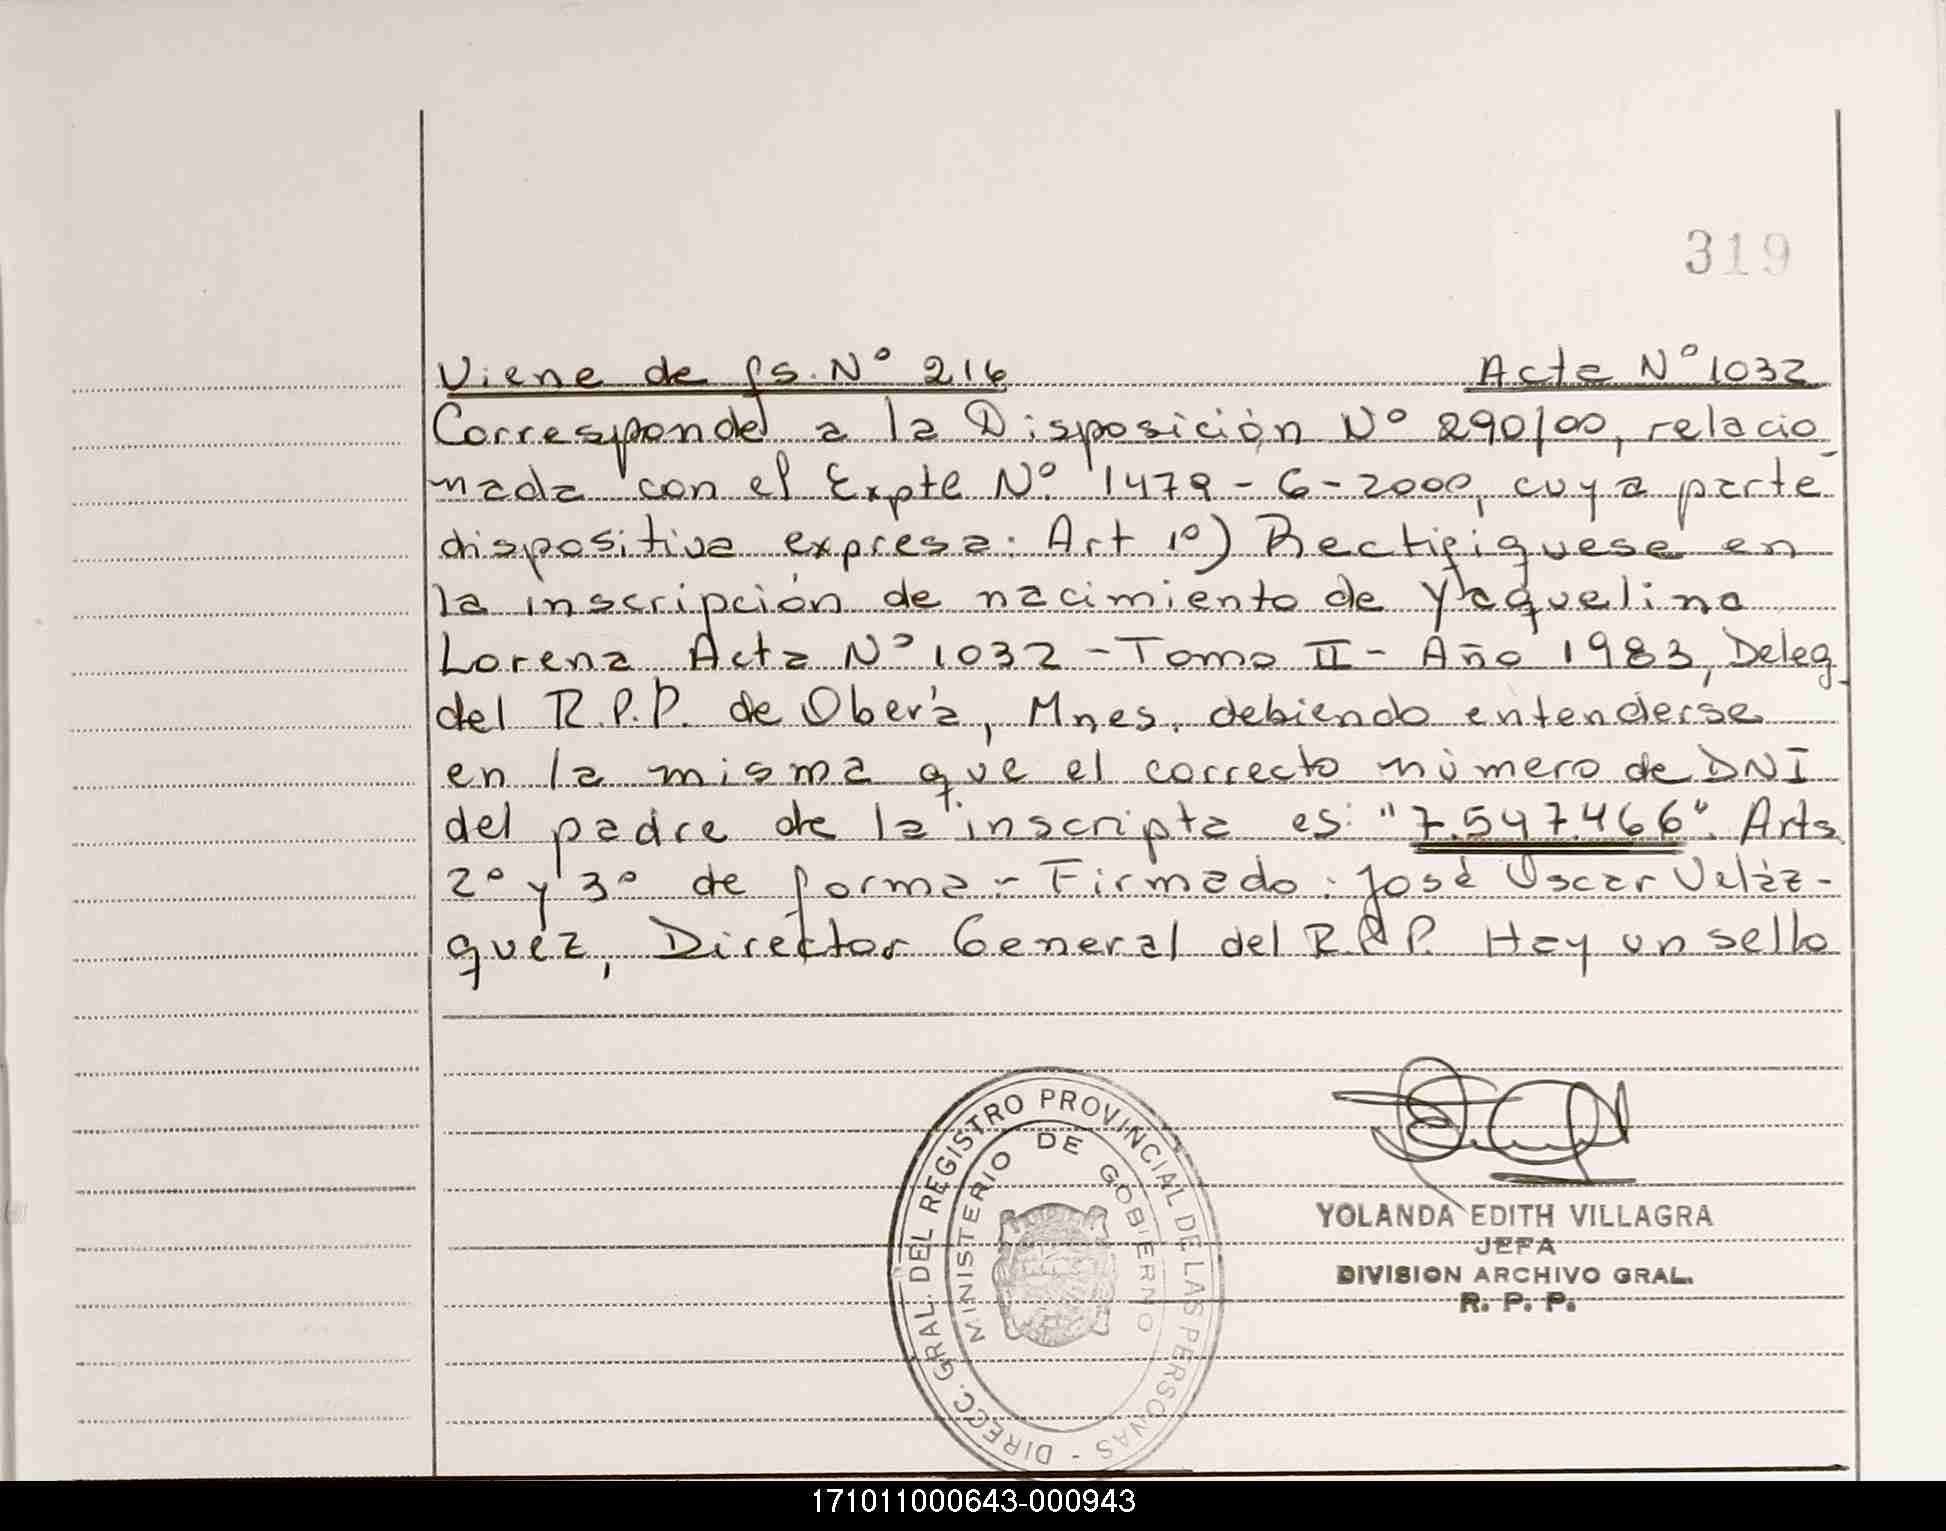 319
Viene de fs. Nº 216 Acta Nº 1032
Corresponde a la Disposición Nº 290/00, relacio_
nada con el Expte Nº 1479-6-2000, cuya parte
dispositiva expresa: Art 1º) Rectifiquese en
la inscripción de nacimiento de Yaquelina
Lorena Acta Nº 1032 - Tomo II - Año 1983, Deleg_
del R.P.P. de Oberá, Mnes, debiendo entenderse
en la misma que el correcto número de DNI
del padre de la inscripta es: "7.547.466". Arts
2º y 3º de forma - Firmado: José Oscar Veláz-
quez, Director General del R.P.P. Hay un sello
DIRECC. GRAL. DEL REGISTRO PROVINCIAL DE LAS PERSONAS -
MINISTERIO DE GOBIERNO
YOLANDA EDITH VILLAGRA
JEFA
DIVISION ARCHIVO GRAL.
R. P. P.
171011000643-000943